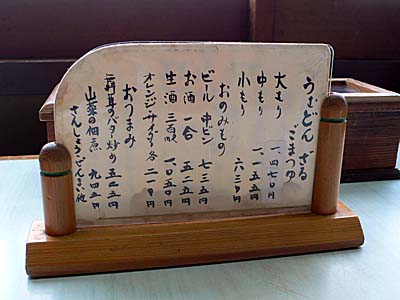 うどん ざる
ごまつゆ
大もり 一、四七〇円
中もり 一、一五五円
小もり 六三〇円
おのみもの
ビール 中ビン 七三五円
お酒 一合 五二五円
生酒 三百ml 一〇五〇円
オレンジ・サイダー 各二一〇円
おつまみ
バター炒め 五二五円
山菜の佃煮 九四五円
さんしょう、ぜんまい他